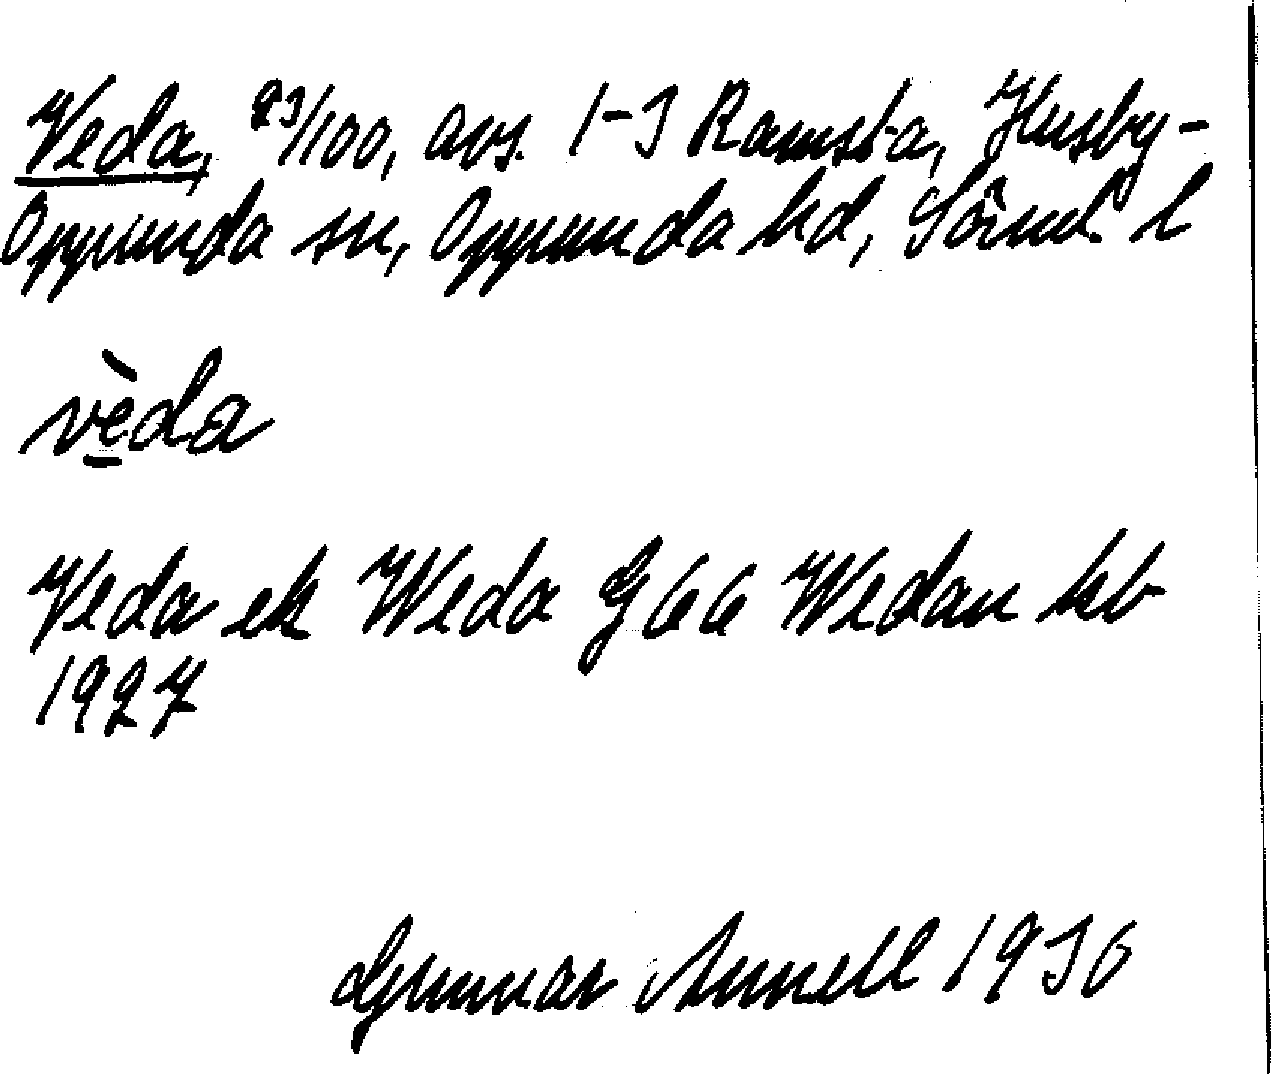 Veda, 23/100, avs. 1-3 Ramsta, Husby-
Oppunda sn, Oppunda hd, Sörml. l
vèda
Veda ek Weda G66 Wedan kb
1927
Gunnar Annell 1936